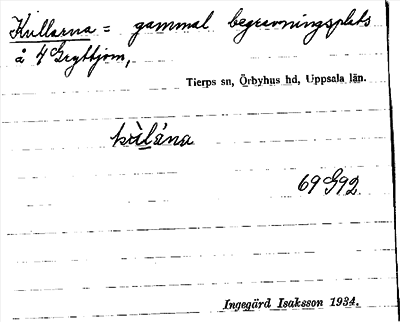 Kullarna = gammal begravningsplats
å 4 Gryttjom,
Tierps sn, Örbyhus hd, Uppsala län.
kùlána
69 G92.
Ingegärd Isaksson 1934.